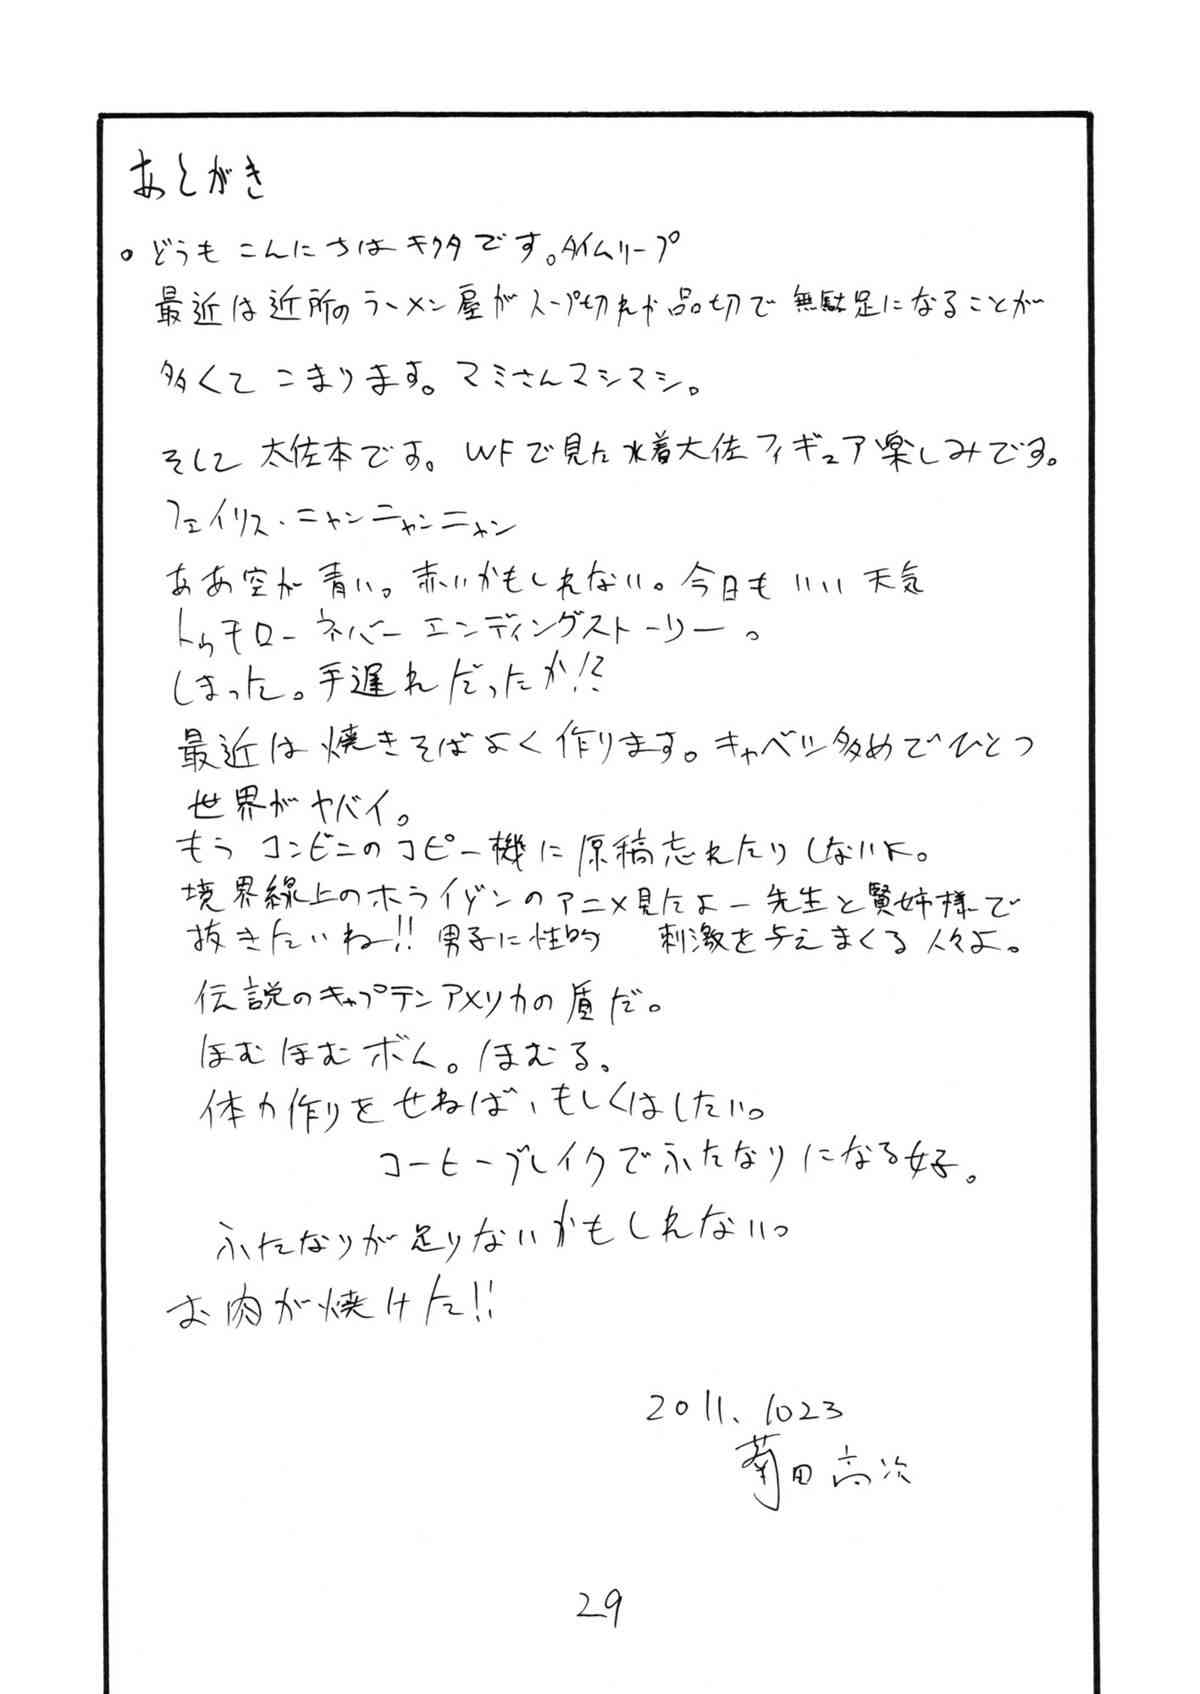 あとがき
。どうも こんにちは キクタです。タイムリープ
最近は近所のラーメン屋がスープ切れか品切で 無駄足になることが
多くて こまります。マミさんマシマシ。
そして 大佐本です。WFで見た水着大佐フィギュア楽しみです。
フェイリス・ニャンニャンニャン
ああ空が青い。赤いかもしれない。今日も いい 天気
トゥモロー ネバー エンディングストーリー 。
しまった。手遅れだったか!?
最近は 焼きそばよく 作ります。キャベツ多めでひとつ
世界がヤバイ。
もう コンビニのコピー機に 原稿忘れたりしないよ。
境界線上のホライゾンのアニメ見たよー先生と賢姉様で
抜きたいね!! 男子に性的 刺激を与えまくる人々よ。
伝説のキャプテンアメリカの盾だ。
ほむほむボム。ほむる。
体力作りをせねば、もしくはしたい。
コーヒーブレイクでふたなりになる女子。
ふたなりが足りないかもしれない。
お肉が焼けた!!
2011.1023
菊田高次
29